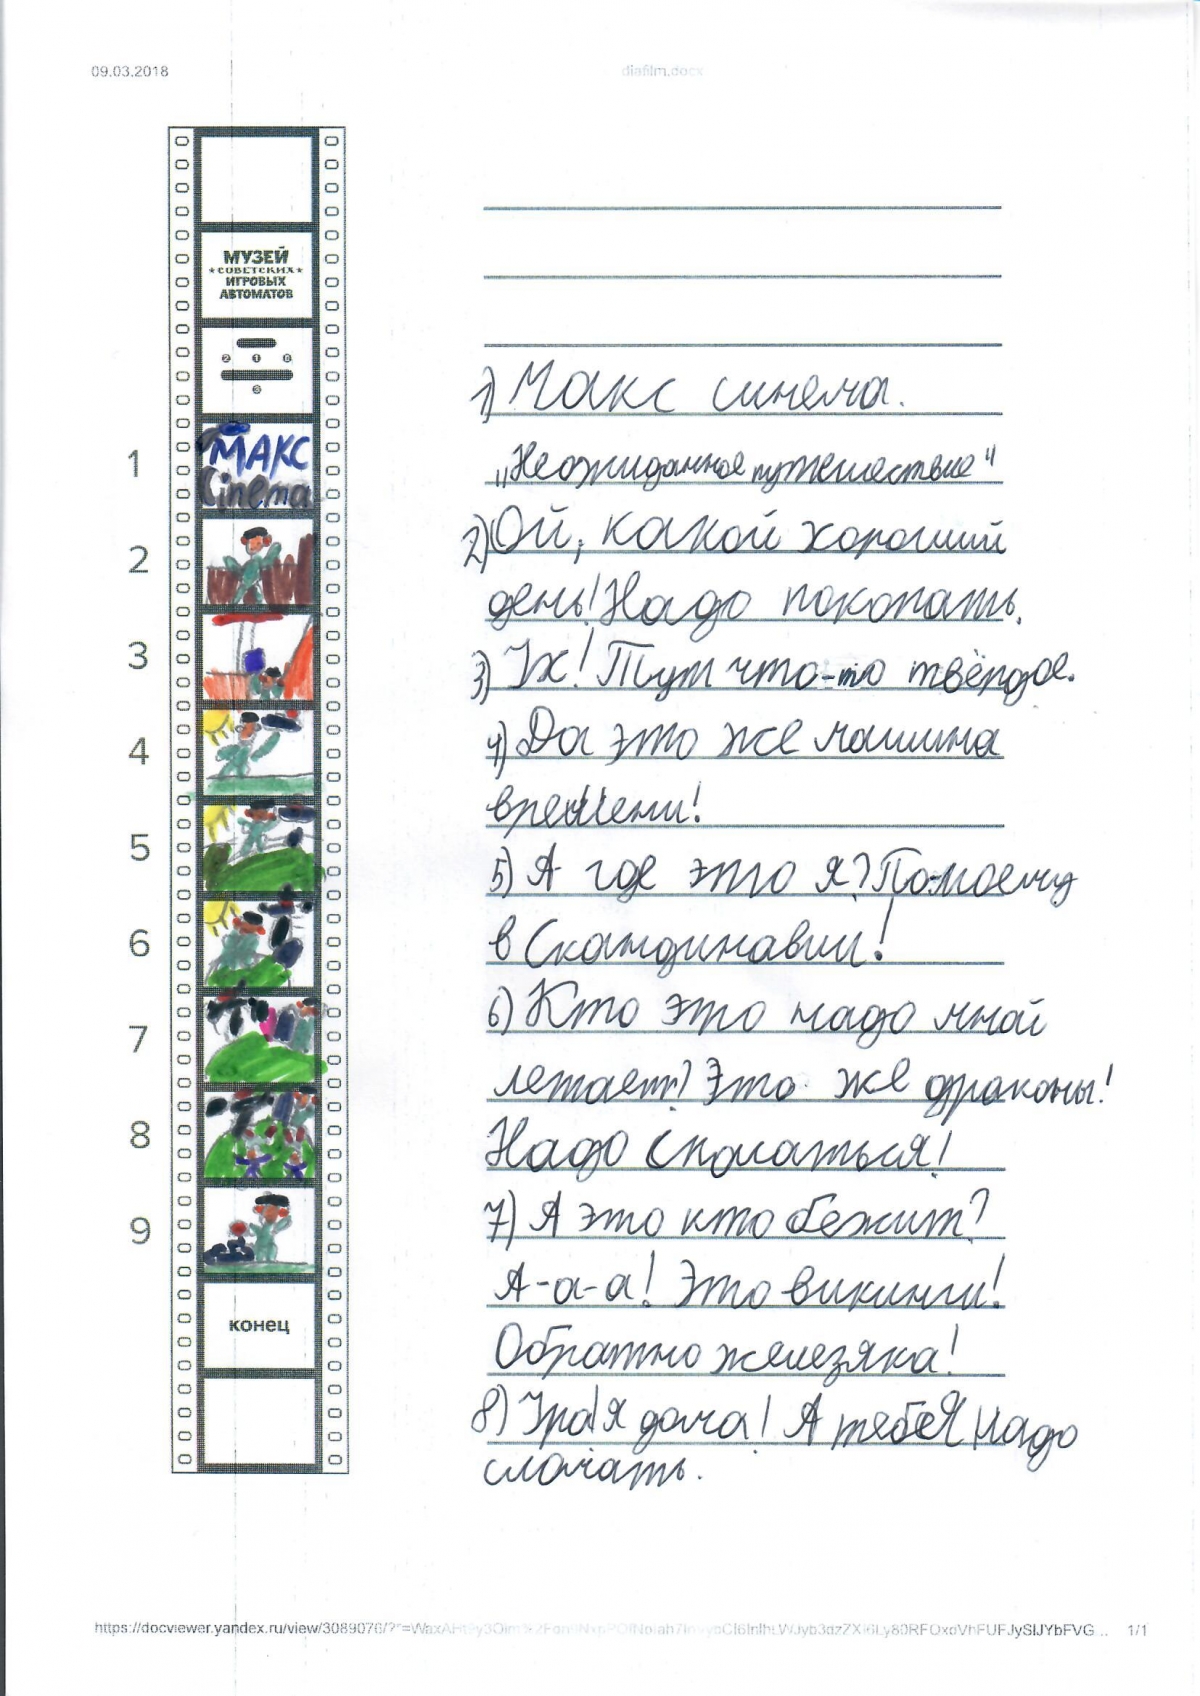 09.03.2018
diafilm.docx
МУЗЕЙ
*СОВЕТСКИХ*
ИГРОВЫХ
АВТОМАТОВ
2 1 8
3
1
МАКС
Cinema
2
3
4
5
6
7
8
9
конец
1) Макс синема.
„Неожиданное путешествие"
2) Ой, какой хороший
день! Надо покопать.
3) Ух! Тут что-то твёрдое.
4) Да это же машина
времени!
5) А где это я? По-моему
в Скандинавии!
6) Кто это надо мной
летает? Это же драконы!
Надо спасаться!
7) А это кто бежит?
А-а-а! Это викинги!
Обратно железяка!
8) Ура! Я дома! А тебя надо
сломать.
https://docviewer.yandex.ru/view/3089076/?*=
1/1